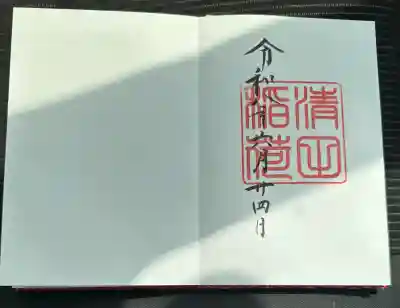 令和八年六月廿四日
清正
稲荷